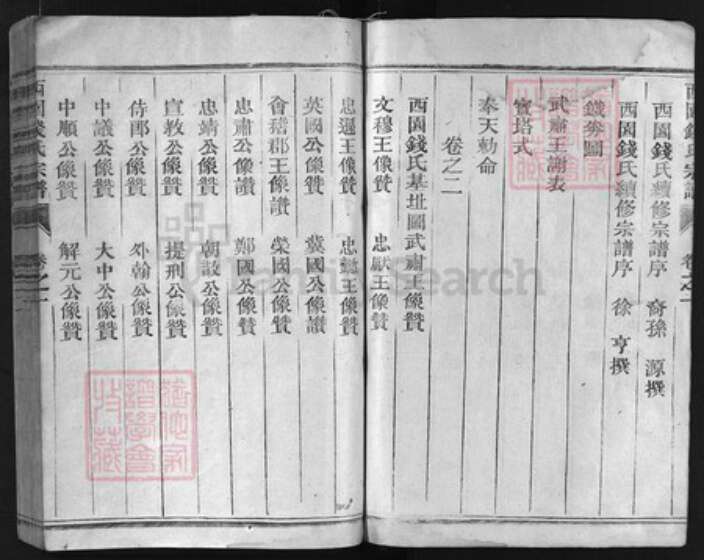 西園錢氏續修宗譜序　裔孫　源撰
西園錢氏續修宗譜序　徐　亨撰
鐵券圖
武肅王謝表
寶塔式
奉天勅命
卷之二
西園錢氏基址圖武肅王像贊
文穆王像贊　忠獻王像贊
忠遜王像贊　忠懿王像贊
英國公像贊　冀國公像讃
會稽郡王像讃　榮國公像贊
忠肅公像讃　鄭國公像贊
忠靖公像贊　朝議公像贊
宣敎公像贊　提刑公像贊
侍郎公像贊　外翰公像贊
中議公像贊　大中公像贊
中順公像贊　解元公像贊
西園錢氏宗譜　卷之二
FamilySearch